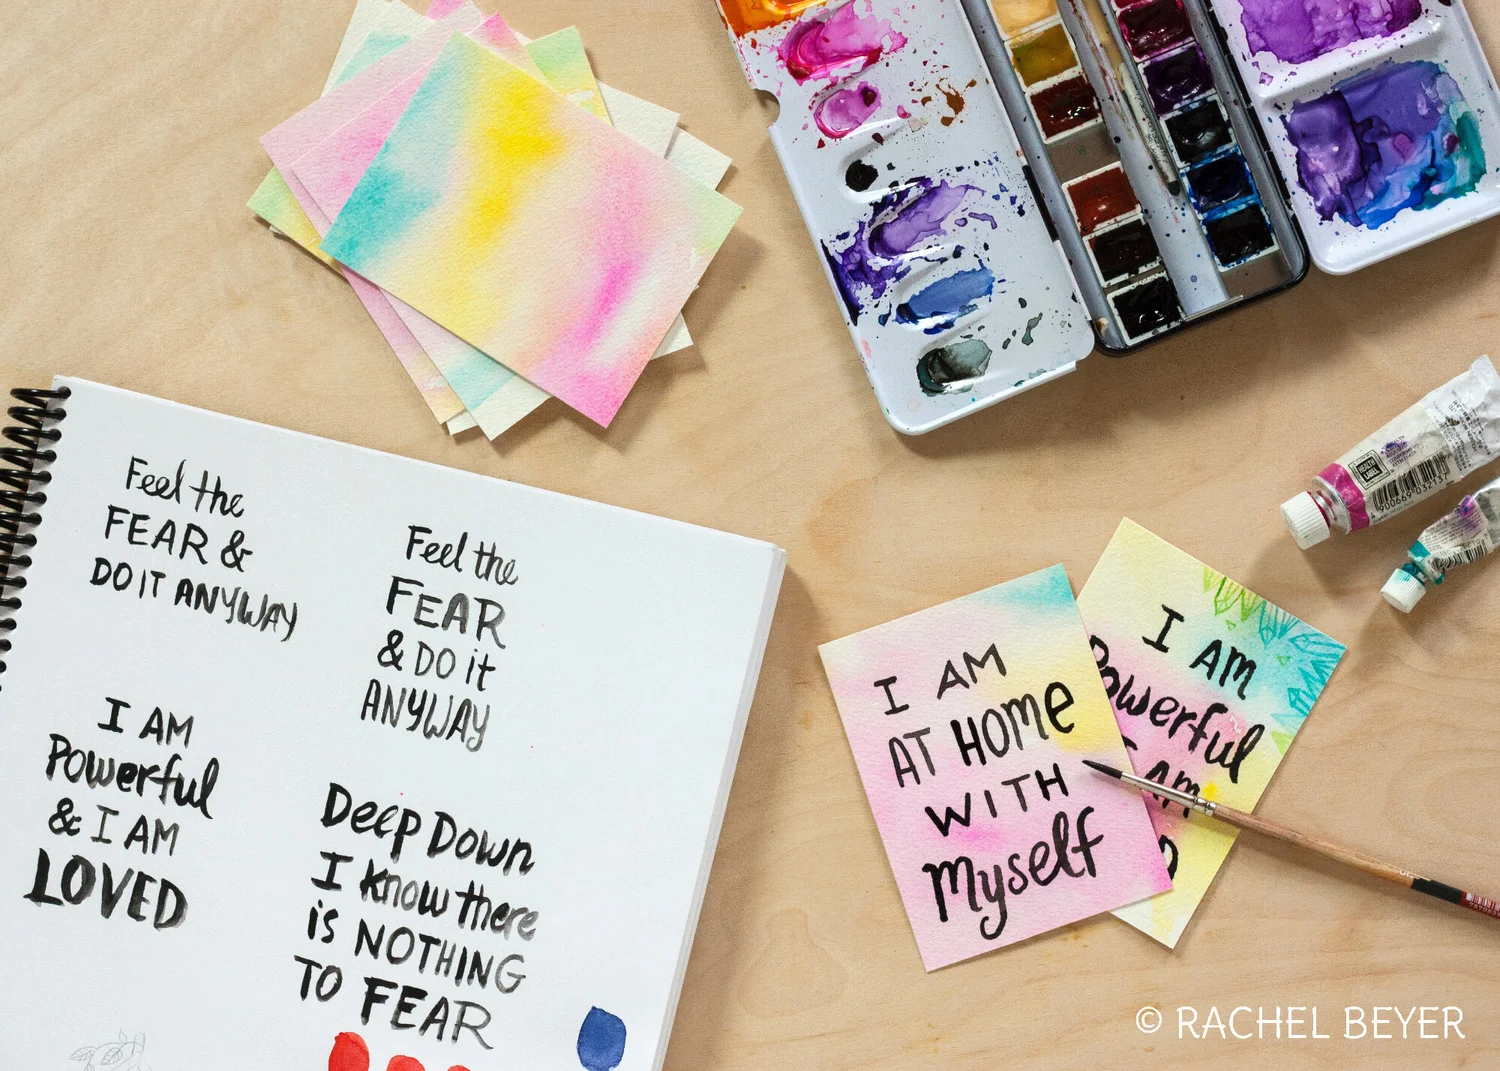 Feel the
FEAR &
DO IT ANYWAY
Feel the
FEAR
& DO it
ANYWAY
I AM
Powerful
& I AM
LOVED
DEEP DOWN
I know there
is NOTHING
TO FEAR
I AM
AT HOME
WITH
myself
I AM
Powerful
I AM
HEALTH
LABEL
4 900669 032137
© RACHEL BEYER